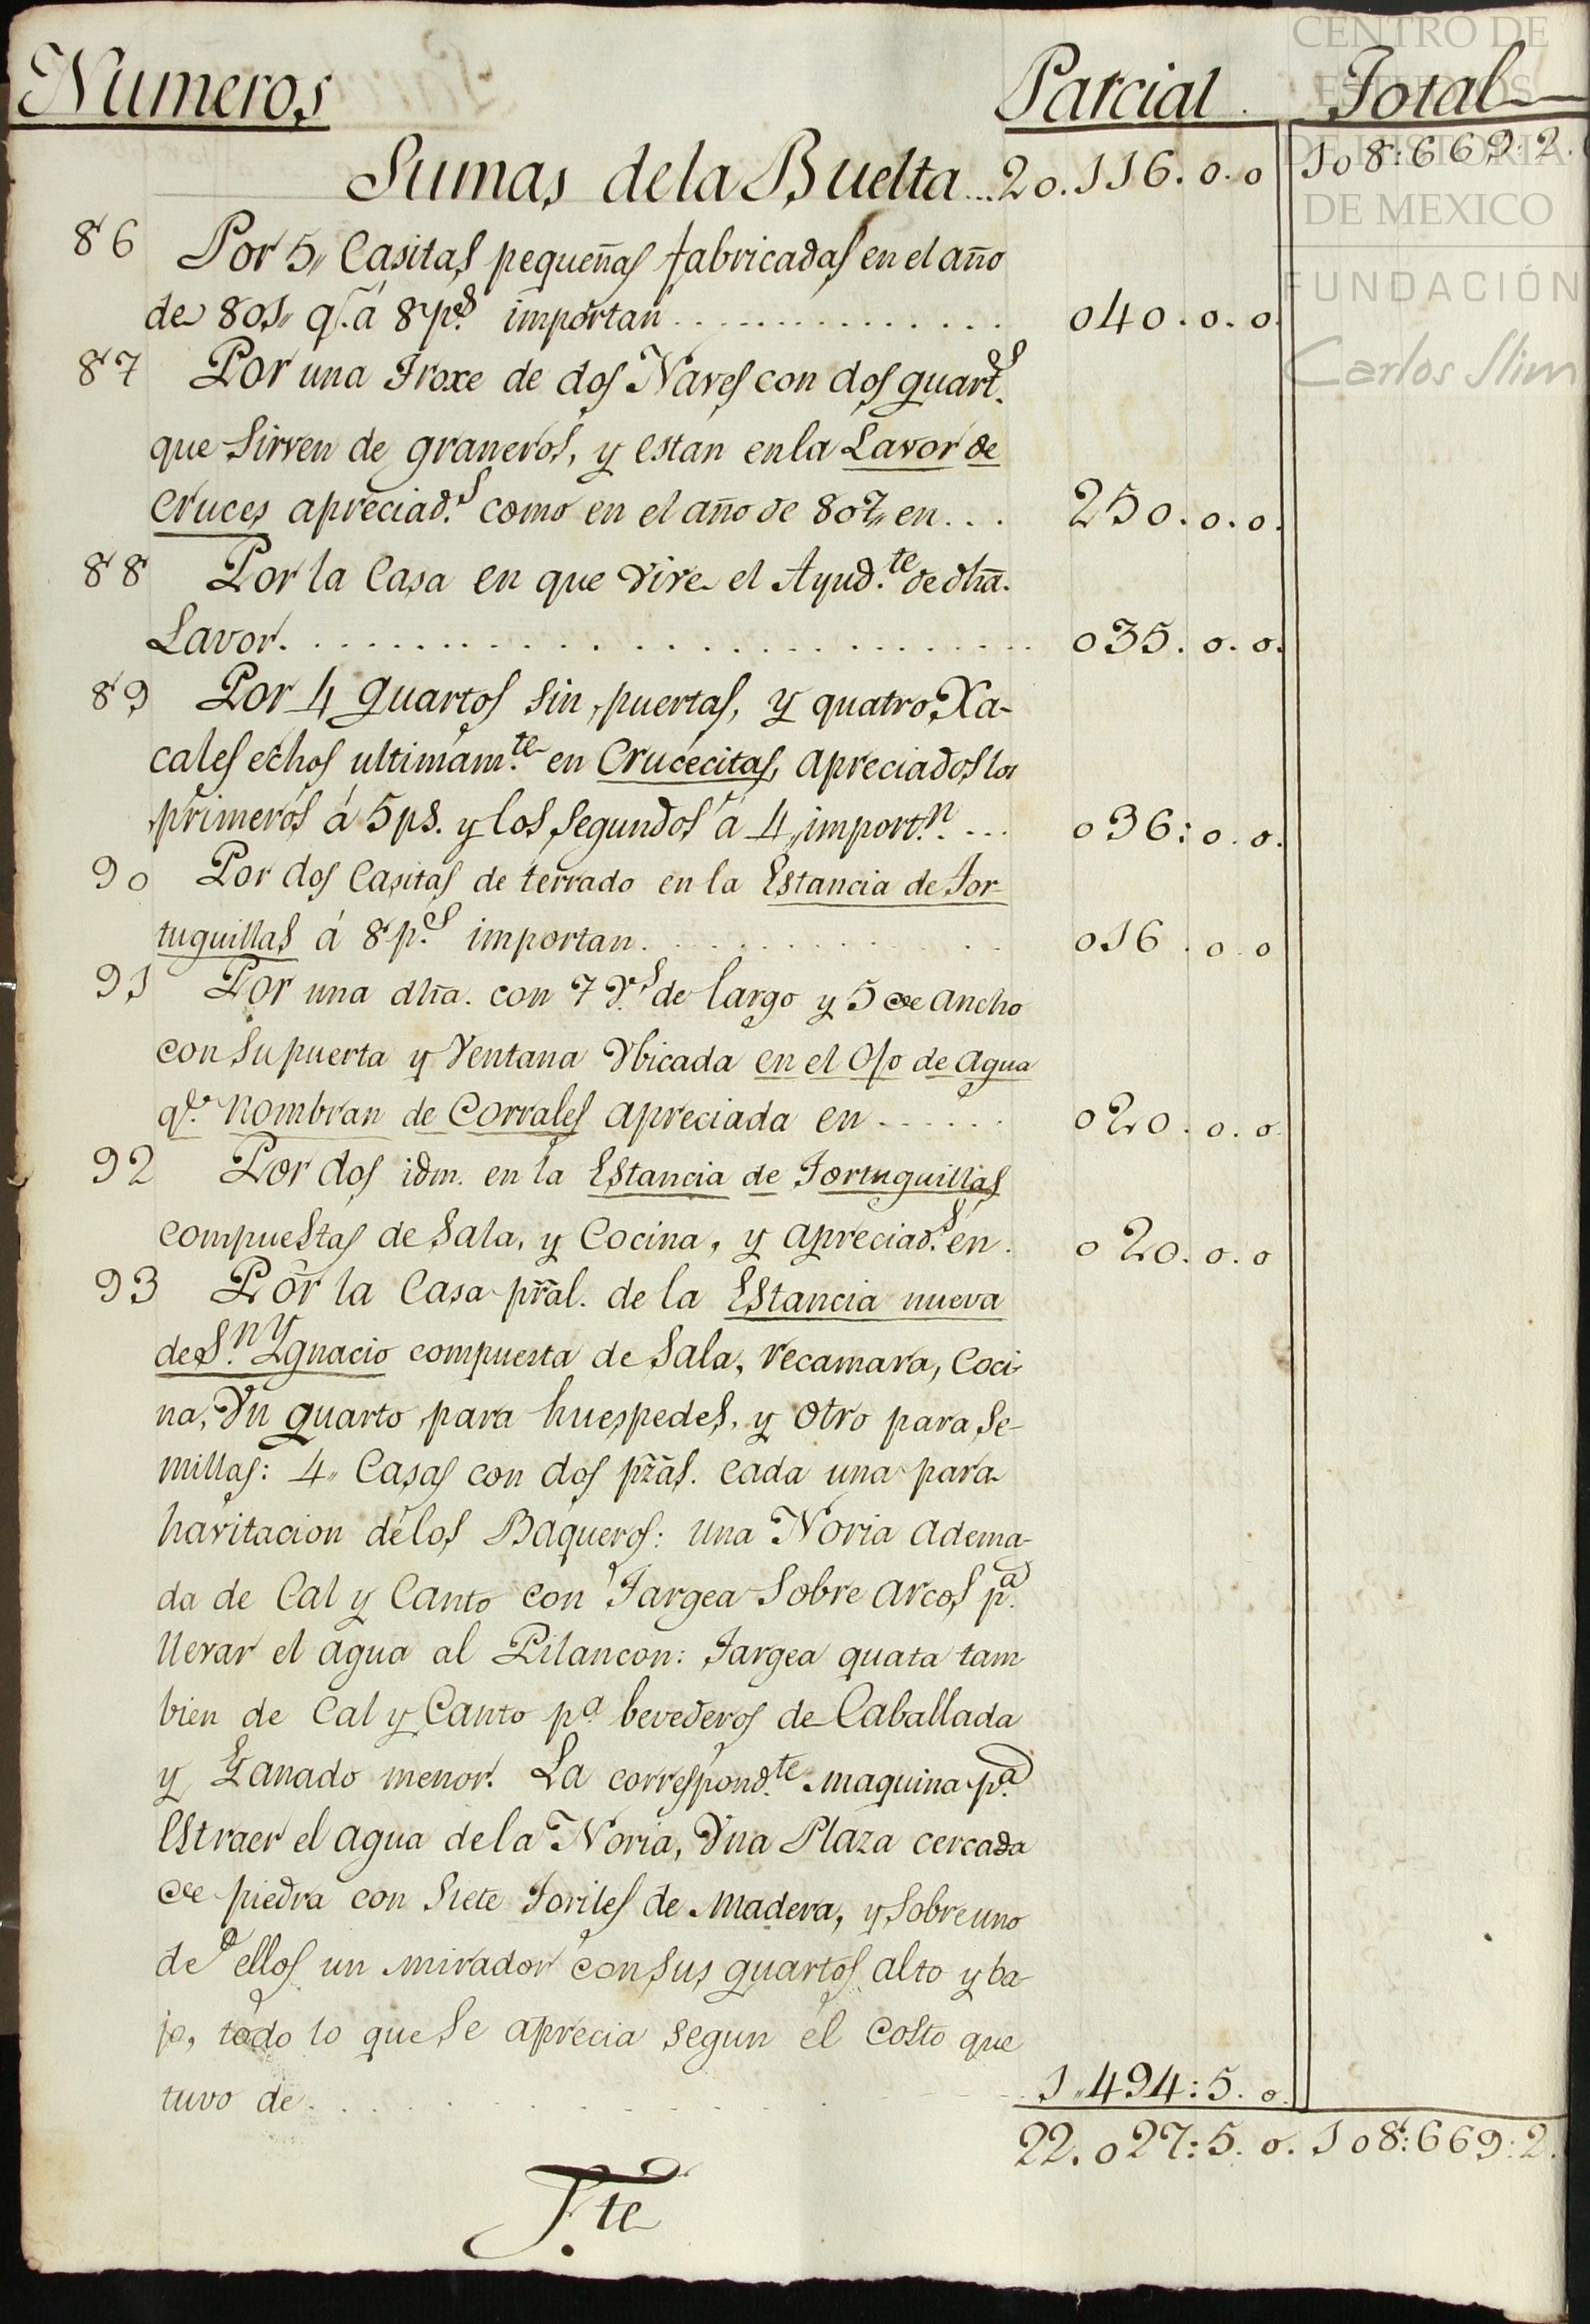 Numeros Parcial. Total
CENTRO DE
ESTUDIOS
DE HISTORIA
DE MEXICO
FUNDACIÓN
Carlos Slim
Sumas de la Buelta... 20.116.0.0 108:669:2.
86 Por 5,, Casitas pequeñas fabricadas en el año
de 801,, q.e á 8 p.s importan .............. 040.0.0.
87 Por una Troxe de dos Naves con dos quart.s
que sirven de graneros, y estan en la Lavor de
Cruces apreciad.s como en el año de 807,, en... 250.0.0.
88 Por la Casa en que vive el Ayud.te de dha.
Lavor............................ 035.0.0.
89 Por 4 quartos sin puertas, y quatro Xa-
cales echos ultimam.te en Crucecitas, apreciados los
primeros á 5 ps. y los segundos á 4,, import.n ... 036:0.0.
90 Por dos Casitas de terrado en la Estancia de Tor-
tuguillas á 8 p.s importan.............. 016.0.0
91 Por una dha. con 7 v.s de largo y 5 de ancho
con su puerta y Ventana Vbicada en el Ojo de Agua
q.e nombran de Corrales apreciada en ...... 020.0.0.
92 Por dos idm. en la Estancia de Tortuguillas
compuestas de Sala, y Cocina, y apreciad.s en. 020.0.0
93 Por la Casa pr̃al. de la Estancia nueva
de S.n Ygnacio compuesta de Sala, recamara, Coci-
na, Vn quarto para huespedes, y otro para se-
millas: 4,, Casas con dos pzãs. cada una para
havitacion de los Baqueros: una Noria adema-
da de Cal y Canto con Targea sobre arcos p.a
llevar el agua al Pilancon: Targea quata tam
bien de Cal y Canto p.a bevederos de Caballada
y Ganado menor. La correspond.te maquina p.a
Estraer el agua de la Noria, Vna Plaza cercada
de piedra con siete Toriles de madera, y sobre uno
de ellos un mirador con sus quartos alto y ba-
jo, todo lo que se aprecia segun el costo que
tuvo de.................. 1,,494:5.0.
22.027:5.0. 108:669:2.
F.te